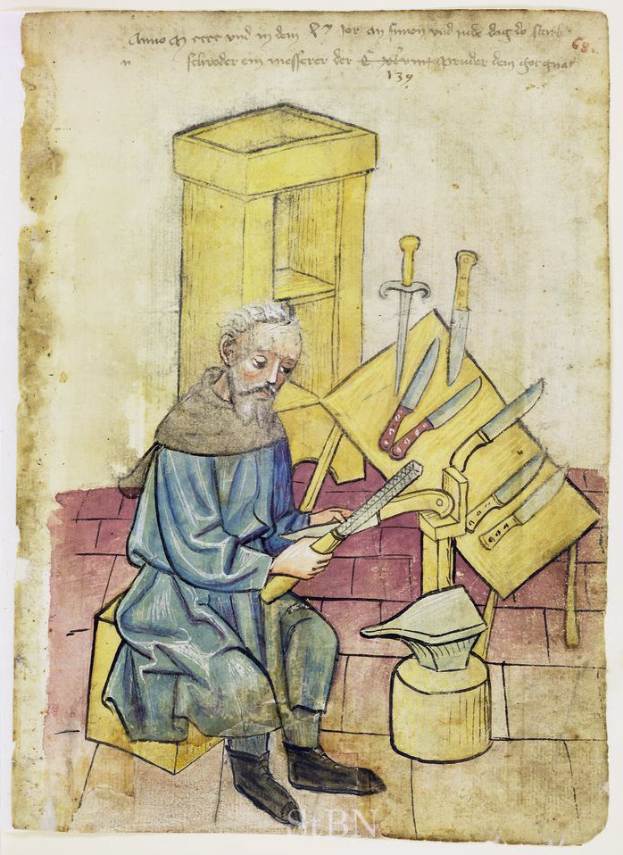 Anno m cccc vnd in dem xv Jor an simon vnd iude dag do starb
68.
n schroder ein messerer der xlviii pruder dem got gnad
139
StBN